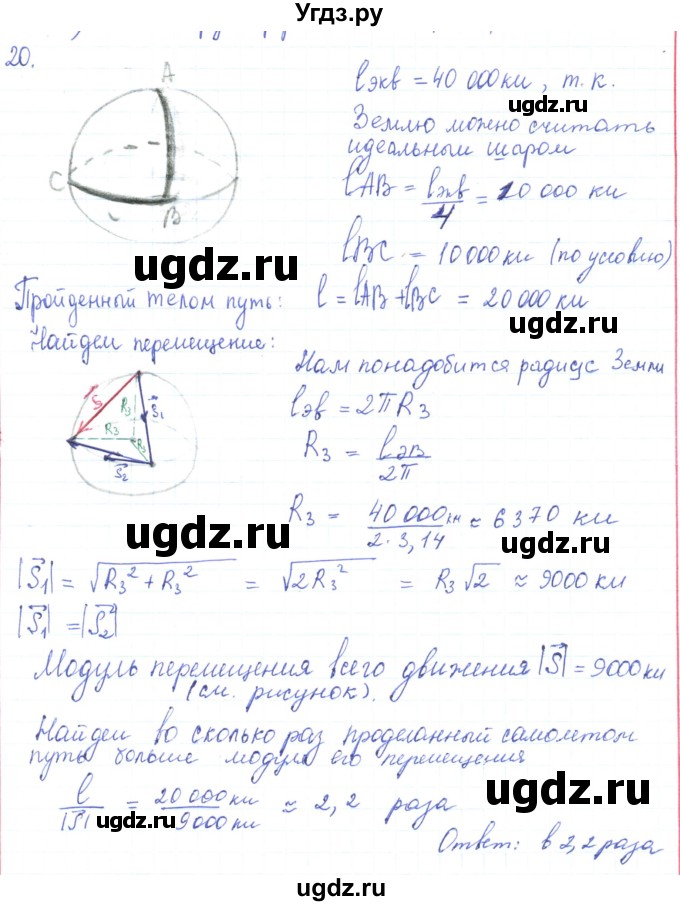 Угдз.ру
20.
A
C
B
lэкв = 40 000 км, т.к.
Землю можно считать
идеальным шаром
lAB = lэкв/4 = 10 000 км
ugdz.ru
lBC = 10 000 км (по условию)
ugdz.ru
Пройденный телом путь: l = lAB + lBC = 20 000 км
ugdz.ru
Найдем перемещение:
Нам понадобится радиус Земли
S
R3
S1
R3
R3
S2
lэв = 2πR3
R3 = lэв/2π
ugdz.ru
ugdz.ru
R3 = 40 000 км/2·3,14 ≈ 6370 км
ugdz.ru
|S⃗1| = √R3² + R3² = √2R3² = R3√2 ≈ 9000 км
|S⃗1| = |S⃗2|
Модуль перемещения всего движения |S⃗| = 9000 км
(см. рисунок).
ugdz.ru
Найдем во сколько раз проделанный самолетом
путь больше модуля его перемещения
ugdz.ru
l/|S| = 20 000 км/9000 км ≈ 2,2 раза
ugdz.ru
Ответ: в 2,2 раза
ugdz.ru